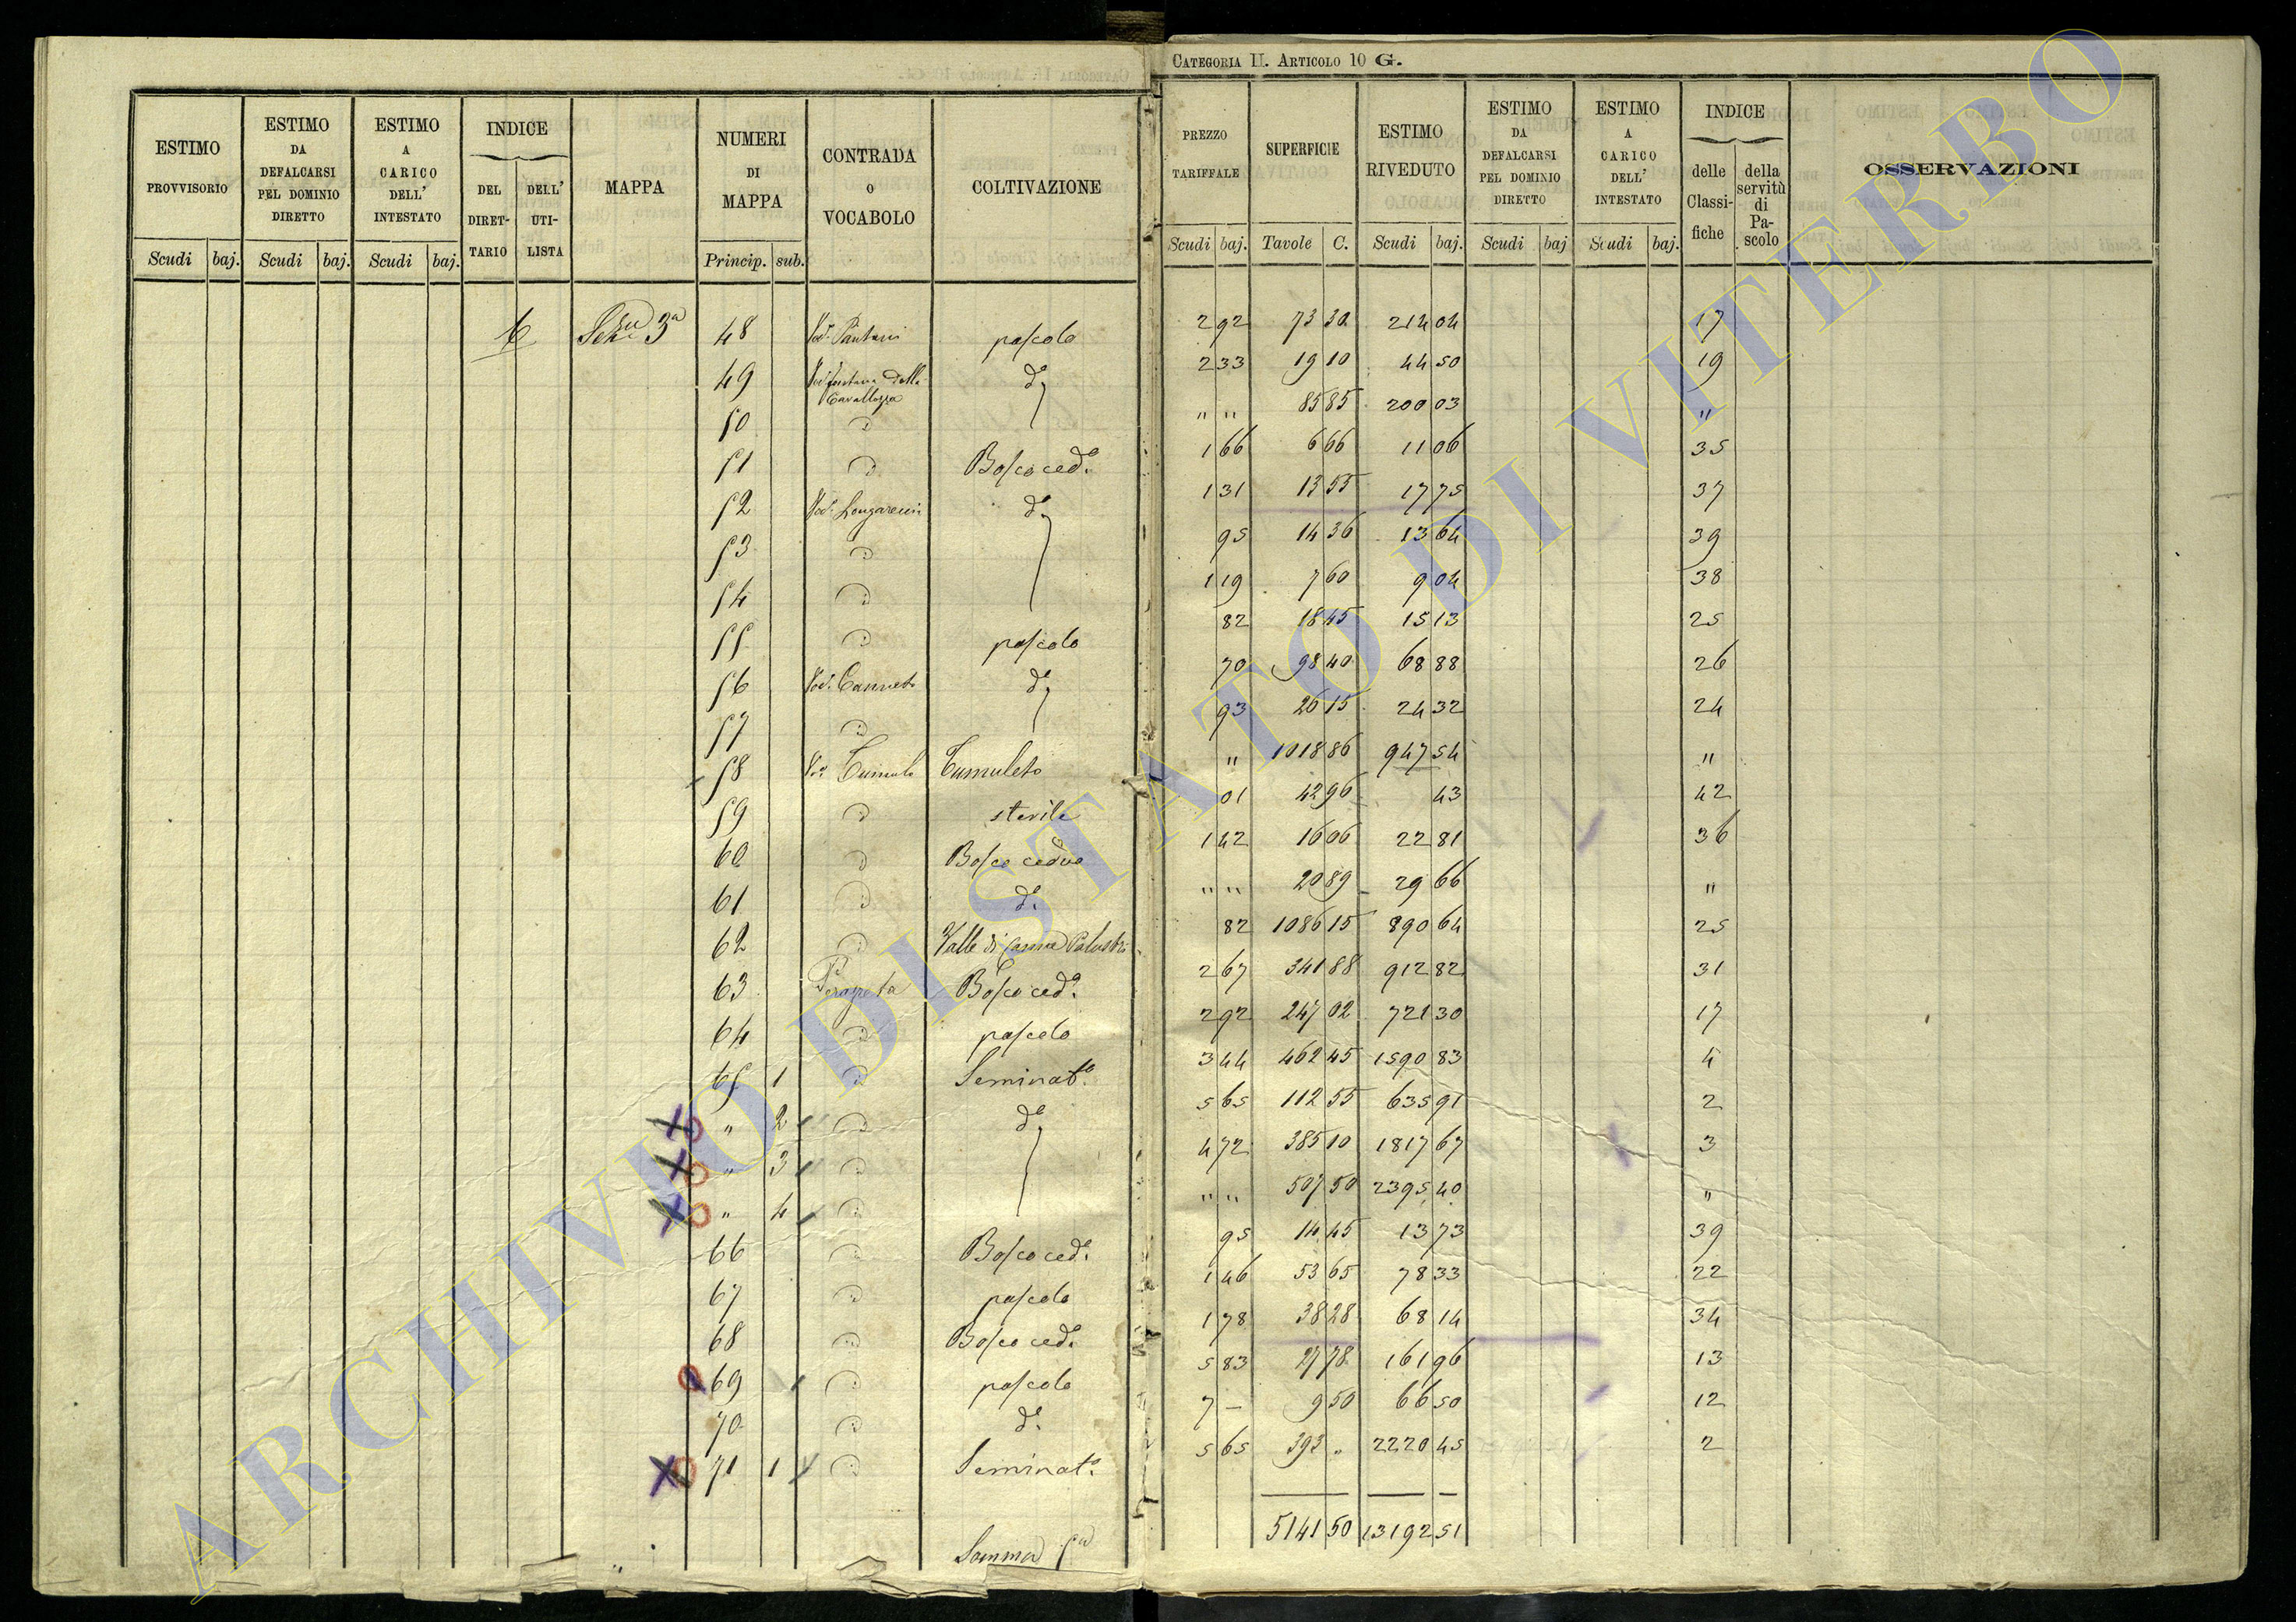 CATEGORIA II. ARTICOLO 10 G.
ESTIMO PROVVISORIO Scudi baj.
ESTIMO DA DEFALCARSI PEL DOMINIO DIRETTO Scudi baj.
ESTIMO A CARICO DELL' INTESTATO Scudi baj.
INDICE DEL DIRET-TARIO DELL' UTI-LISTA
MAPPA
NUMERI DI MAPPA Princip. sub.
CONTRADA O VOCABOLO
COLTIVAZIONE
PREZZO TARIFFALE Scudi baj.
SUPERFICIE Tavole C.
ESTIMO RIVEDUTO Scudi baj.
ESTIMO DA DEFALCARSI PEL DOMINIO DIRETTO Scudi baj
ESTIMO A CARICO DELL' INTESTATO Scudi baj.
INDICE delle Classi-fiche della servitù di Pa-scolo
OSSERVAZIONI
6 3ª 48 Vod. Pantani pascolo 2 92 73 30 214 04 17
49 Vod. fontana della Cavallozza d° 2 33 19 10 44 50 19
50 D " " 85 85 200 03 "
51 D Bosco ced.° 1 66 6 66 11 06 35
52 d° 1 31 13 55 17 75 37
53 D 95 14 36 13 64 39
54 D 1 19 7 60 9 04 38
55 D pascolo 82 18 45 15 13 25
56 Vod. Canneto d° 70 98 40 68 88 26
57 D 93 26 15 24 32 24
58 Vod. Tumulo Tumuleto " 1018 86 947 54 "
59 D sterile 01 42 96 43 42
60 D Bosco ceduo 1 42 16 06 22 81 36
61 D d° " " 20 89 29 66 "
62 D Valle di canne Palustri 82 1086 15 890 64 25
63 Bosco ced.° 2 67 341 88 912 82 31
64 D pascolo 2 92 247 02 721 30 17
65 1 D Seminat.° 3 44 462 45 1590 83 4
" 2 D d° 5 65 112 55 635 91 2
" 3 D 4 72 385 10 1817 67 3
" 4 D " " 507 50 2395 40 "
66 D Bosco ced.° 95 14 45 13 73 39
67 D pascolo 1 46 53 65 78 33 22
68 D Bosco ced.° 1 78 38 28 68 14 34
69 D pascolo 5 83 27 78 161 96 13
70 D d° 7 — 9 50 66 50 12
71 1 D Seminat.° 5 65 393 " 2220 45 2
Somma 5141 50 13192 51
ARCHIVIO DI STATO DI VITERBO